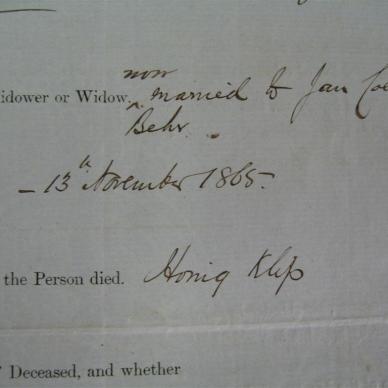 now
idower or Widow ^ married to Jan Coe
Behr.
– 13th November 1865.
the Person died. Honig Klip
Deceased, and whether